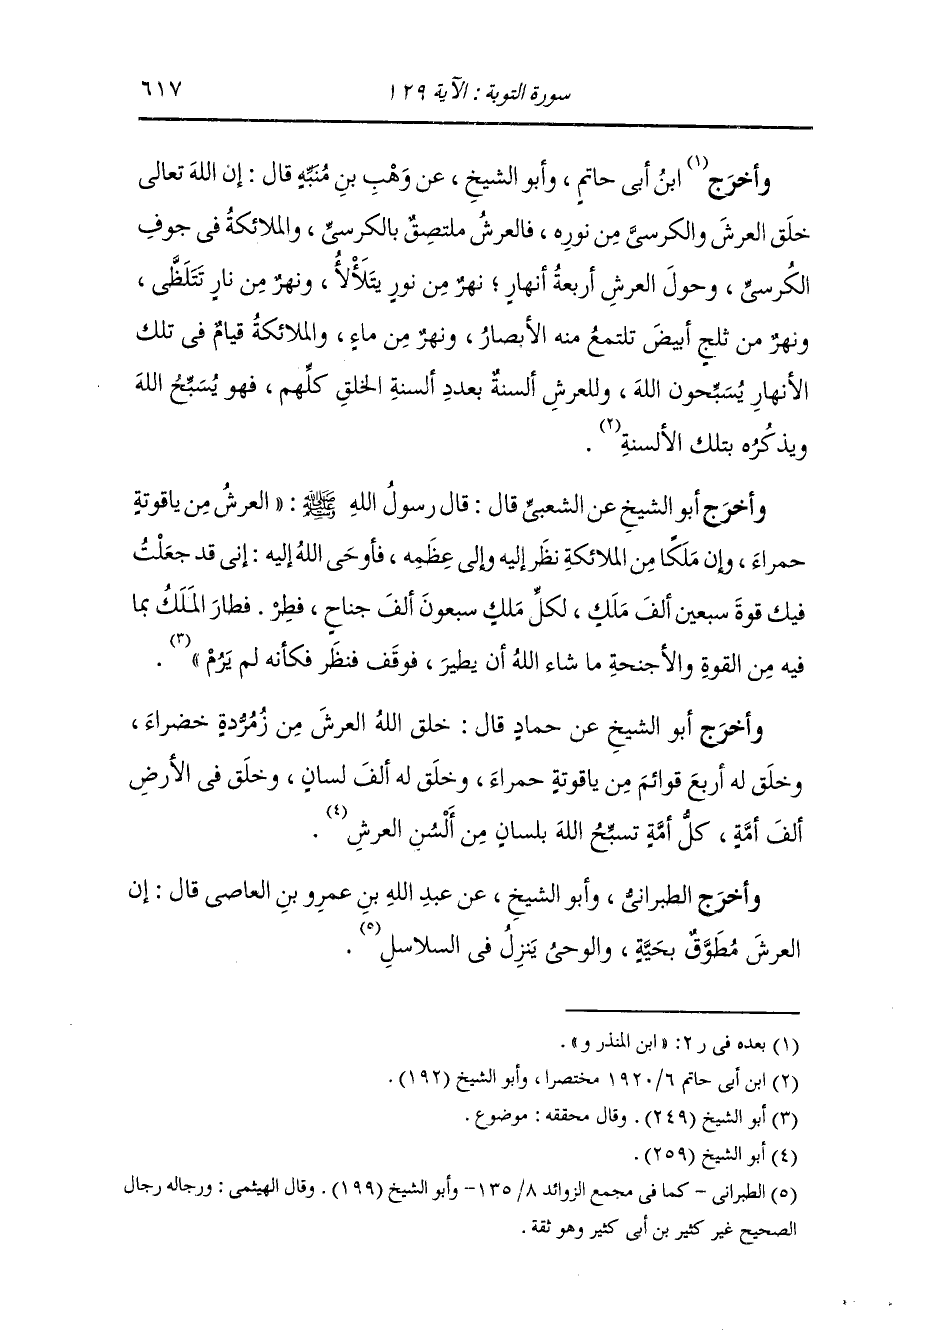 سورة التوبة : الآية ١٢٩ ٦١٧
وأخرَج(١) ابنُ أبى حاتمٍ ، وأبو الشيخِ ، عن وَهْبِ بنِ مُنَبِّهٍ قال : إن اللهَ تعالى
خلَق العرشَ والكرسىَّ مِن نورِه ، فالعرشُ ملتصِقٌ بالكرسىِّ ، والملائكةُ فى جوفِ
الكُرسىِّ ، وحولَ العرشِ أربعةُ أنهارٍ ؛ نهرٌ مِن نورٍ يتلَأْلَأُ ، ونهرٌ مِن نارٍ تَتَلَظَّى ،
ونهرٌ من ثلجٍ أبيضَ تلتمعُ منه الأبصارُ ، ونهرٌ مِن ماءٍ ، والملائكةُ قيامٌ فى تلك
الأنهارِ يُسَبِّحون اللهَ ، وللعرشِ ألسنةٌ بعددِ ألسنةِ الخلقِ كلِّهم ، فهو يُسَبِّحُ اللهَ
ويذكُرُه بتلك الألسنةِ(٢) .
وأخرَج أبو الشيخِ عن الشعبىِّ قال : قال رسولُ اللهِ ﷺ : « العرشُ مِن ياقوتةٍ
حمراءَ ، وإن مَلَكًا مِن الملائكةِ نظَر إليه وإلى عِظَمِه ، فأوحَى اللهُ إليه : إنى قد جعَلْتُ
فيك قوةَ سبعين ألفَ مَلَكٍ ، لكلِّ مَلكٍ سبعونَ ألفَ جناحٍ ، فطِرْ . فطارَ المَلَكُ بما
فيه مِن القوةِ والأجنحةِ ما شاء اللهُ أن يطيرَ ، فوقَف فنظَر فكأنه لم يَرُمْ »(٣) .
وأخرَج أبو الشيخِ عن حمادٍ قال : خلق اللهُ العرشَ مِن زُمُرُّدةٍ خضراءَ ،
وخلَق له أربعَ قوائمَ مِن ياقوتةٍ حمراءَ ، وخلَق له ألفَ لسانٍ ، وخلَق فى الأرضِ
ألفَ أمَّةٍ ، كلُّ أمَّةٍ تسبِّحُ اللهَ بلسانٍ مِن ألْسُنِ العرشِ(٤) .
وأخرَج الطبرانىُّ ، وأبو الشيخِ ، عن عبدِ اللهِ بنِ عمرِو بنِ العاصى قال : إن
العرشَ مُطَوَّقٌ بحَيَّةٍ ، والوحىُ يَنزِلُ فى السلاسلِ(٥) .
(١) بعده فى ر ٢: « ابن المنذر و» .
(٢) ابن أبى حاتم ٦/ ١٩٢٠ مختصرا ، وأبو الشيخ (١٩٢) .
(٣) أبو الشيخ (٢٤٩) . وقال محققه : موضوع .
(٤) أبو الشيخ (٢٥٩) .
(٥) الطبرانى - كما فى مجمع الزوائد ٨/ ١٣٥- وأبو الشيخ (١٩٩) . وقال الهيثمى : ورجاله رجال
الصحيح غير كثير بن أبى كثير وهو ثقة .